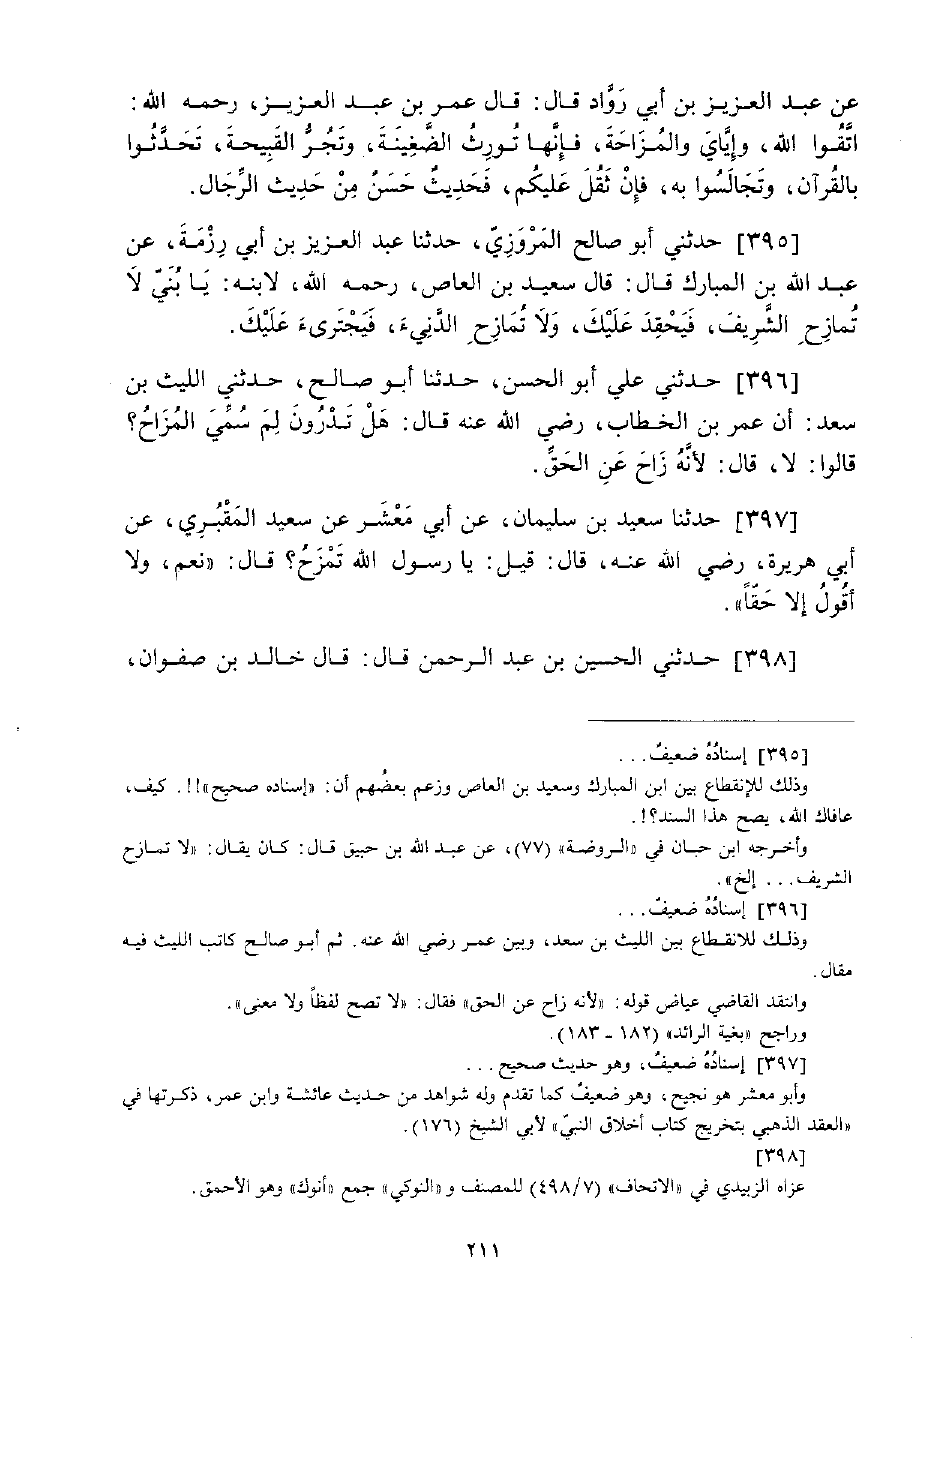 عن عبد العزيز بن أبي رَوَّاد قال: قال عمر بن عبد العزيز، رحمه الله:
اتَّقُوا الله، وإيَّايَ والمُزَاحَةَ، فإنَّها تُورِثُ الضَّغِينَةَ، وتَجُرُّ القَبِيحَةَ، تَحَدَّثُوا
بالقُرآنِ، وتَجَالَسُوا به، فإنْ ثَقُلَ عَلَيكُم، فَحَدِيثٌ حَسَنٌ مِنْ حَدِيث الرِّجَال.
[٣٩٥] حدثني أبو صالح المَرْوَزِيّ، حدثنا عبد العزيز بن أبي رِزْمَةَ، عن
عبد الله بن المبارك قال: قال سعيد بن العاص، رحمه الله، لابنه: يَا بُنَيّ لَا
تُمازِحِ الشَّرِيفَ، فَيَحْقِدَ عَلَيْكَ، وَلَا تُمَازِحِ الدَّنِيءَ، فَيَجْتَرِىءَ عَلَيْكَ.
[٣٩٦] حدثني علي أبو الحسن، حدثنا أبو صالح، حدثني الليث بن
سعد: أن عمر بن الخطاب، رضي الله عنه قال: هَلْ تَدْرُونَ لِمَ سُمِّيَ المُزَاحُ؟
قالوا: لا، قال: لأَنَّهُ زَاحَ عَنِ الحَقِّ.
[٣٩٧] حدثنا سعيد بن سليمان، عن أبي مَعْشَر عن سعيد المَقْبُرِي، عن
أبي هريرة، رضي الله عنه، قال: قيل: يا رسول الله تَمْزَحُ؟ قال: «نعم، ولا
أقُولُ إلا حَقّاً».
[٣٩٨] حدثني الحسين بن عبد الرحمن قال: قال خالد بن صفوان،
[٣٩٥] إسنادُهُ ضعيفٌ...
وذلك للإنقطاع بين ابن المبارك وسعيد بن العاص وزعم بعضُهم أن: «إسناده صحيح»!!. كيف،
عافاك الله، يصح هذا السند؟!.
وأخرجه ابن حبان في «الروضة» (٧٧)، عن عبد الله بن حبيق قال: كان يقال: «لا تمازح
الشريف... إلخ».
[٣٩٦] إسنادُهُ ضعيفٌ...
وذلك للانقطاع بين الليث بن سعد، وبين عمر رضي الله عنه. ثم أبو صالح كاتب الليث فيه
مقال.
وانتقد القاضي عياض قوله: «لأنه زاح عن الحق» فقال: «لا تصح لفظاً ولا معنى».
وراجع «بغية الرائد» (١٨٢ - ١٨٣).
[٣٩٧] إسنادُهُ ضعيفٌ، وهو حديث صحيح...
وأبو معشر هو نجيح، وهو ضعيفٌ كما تقدم وله شواهد من حديث عائشة وابن عمر، ذكرتها في
«العقد الذهبي بتخريج كتاب أخلاق النبيّ» لأبي الشيخ (١٧٦).
[٣٩٨]
عزاه الزبيدي في «الاتحاف» (٤٩٨/٧) للمصنف و«النوكي» جمع «أنوك» وهو الأحمق.
٢١١